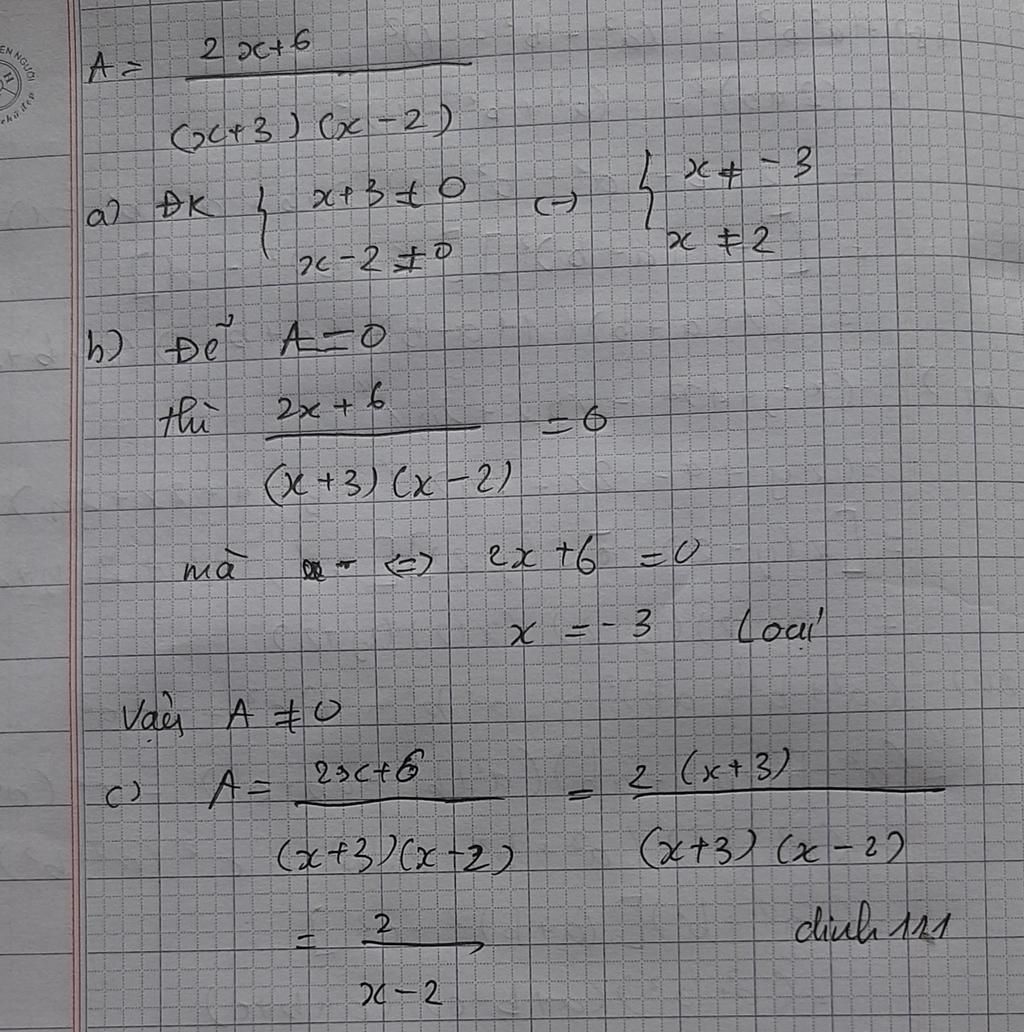 EN NGƯỜI
H
chữ đẹp
A = 2x+6 / (x+3)(x-2)
a) ĐK { x+3 ≠ 0 ; x-2 ≠ 0 (-) { x ≠ -3 ; x ≠ 2
b) Để A = 0
thì 2x+6 / (x+3)(x-2) = 6
mà <=> 2x+6 = 0
x = -3 Loại
Vậy A ≠ 0
c) A = 2x+6 / (x+3)(x-2) = 2(x+3) / (x+3)(x-2)
= 2 / x-2
dinh 121